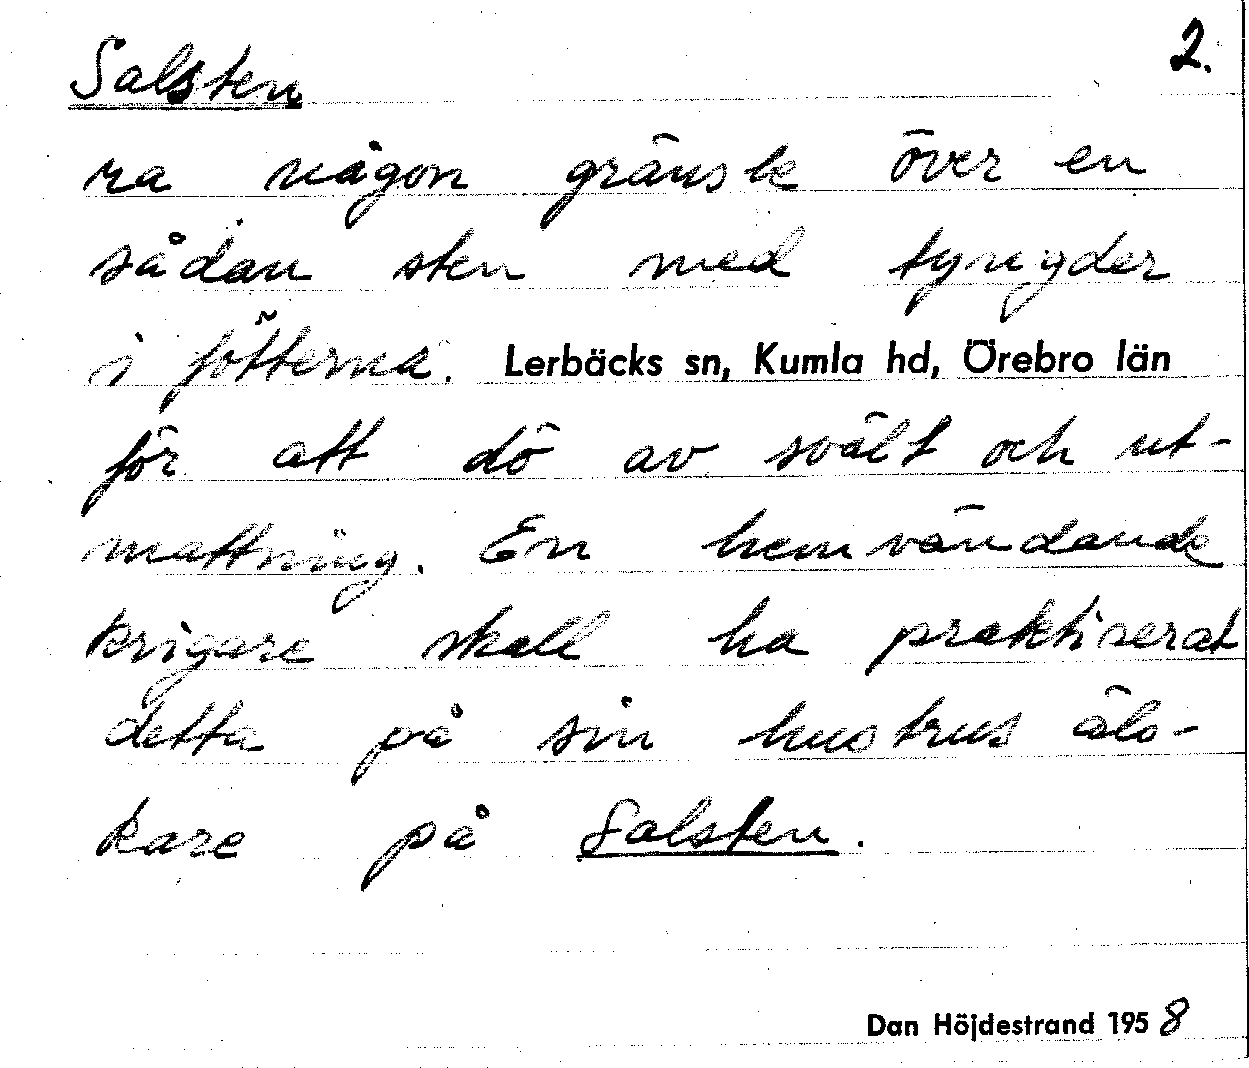 Salsten 2.
ra någon gränsle över en
sådan sten med tyngder
i fötterna. Lerbäcks sn, Kumla hd, Örebro län
för att dö av svält och ut-
mattning. En hemvändande
krigare skall ha praktiserat
detta på sin hustrus äls-
kare på Salsten.
Dan Höjdestrand 1958